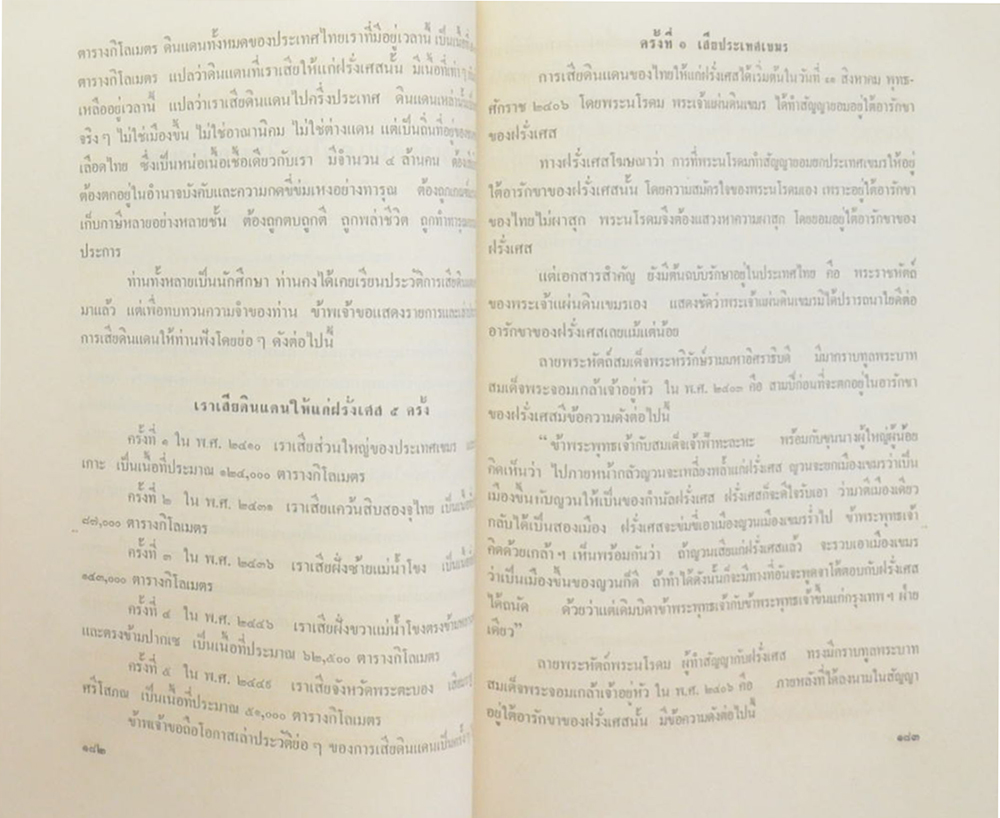 ตารางกิโลเมตร ดินแดนทั้งหมดของประเทศไทยเราที่มีอยู่เวลานี้ เป็นเนื้อที่
ตารางกิโลเมตร แปลว่าดินแดนที่เราเสียให้แก่ฝรั่งเศสนั้น มีเนื้อที่เท่าๆ
เหลืออยู่เวลานี้ แปลว่าเราเสียดินแดนไปครึ่งประเทศ ดินแดนเหล่านั้น
จริงๆ ไม่ใช่เมืองขึ้น ไม่ใช่อาณานิคม ไม่ใช่ต่างแดน แต่เป็นถิ่นที่อยู่ของ
เลือดไทย ซึ่งเป็นหน่อเนื้อเชื้อเดียวกับเรา มีจำนวน ๔ ล้านคน
ต้องตกอยู่ในอำนาจบังคับและความกดขี่ข่มเหงอย่างทารุณ ต้องถูกเกณฑ์
เก็บภาษีหลายอย่างหลายชั้น ต้องถูกตบถูกตี ถูกพล่าชีวิต ถูกทำทารุณ
ประการ
ท่านทั้งหลายเป็นนักศึกษา ท่านคงได้เคยเรียนประวัติการเสียดินแดน
มาแล้ว แต่เพื่อทบทวนความจำของท่าน ข้าพเจ้าขอแสดงรายการและ
การเสียดินแดนให้ท่านฟังโดยย่อๆ ดังต่อไปนี้
เราเสียดินแดนให้แก่ฝรั่งเศส ๕ ครั้ง
ครั้งที่ ๑ ใน พ.ศ. ๒๔๑๐ เราเสียส่วนใหญ่ของประเทศเขมร และ
เกาะ เป็นเนื้อที่ประมาณ ๑๒๔,๐๐๐ ตารางกิโลเมตร
ครั้งที่ ๒ ใน พ.ศ. ๒๔๓๑ เราเสียแคว้นสิบสองจุไทย เป็นเนื้อที่
๘๗,๐๐๐ ตารางกิโลเมตร
ครั้งที่ ๓ ใน พ.ศ. ๒๔๓๖ เราเสียฝั่งซ้ายแม่น้ำโขง เป็นเนื้อที่
๑๔๓,๐๐๐ ตารางกิโลเมตร
ครั้งที่ ๔ ใน พ.ศ. ๒๔๔๖ เราเสียฝั่งขวาแม่น้ำโขงตรงข้าม
และตรงข้ามปากเซ เป็นเนื้อที่ประมาณ ๖๒,๕๐๐ ตารางกิโลเมตร
ครั้งที่ ๕ ใน พ.ศ. ๒๔๔๙ เราเสียจังหวัดพระตะบอง
ศรีโสภณ เป็นเนื้อที่ประมาณ ๕๑,๐๐๐ ตารางกิโลเมตร
ข้าพเจ้าขอถือโอกาสเล่าประวัติย่อๆ ของการเสียดินแดนเป็นครั้งๆ
๑๘๒
ครั้งที่ ๑ เสียประเทศเขมร
การเสียดินแดนของไทยให้แก่ฝรั่งเศสได้เริ่มต้นในวันที่ ๑๑ สิงหาคม พุทธ-
ศักราช ๒๔๐๖ โดยพระนโรดม พระเจ้าแผ่นดินเขมร ได้ทำสัญญายอมอยู่ใต้อารักขา
ของฝรั่งเศส
ทางฝรั่งเศสโฆษณาว่า การที่พระนโรดมทำสัญญายอมยกประเทศเขมรให้อยู่
ใต้อารักขาของฝรั่งเศสนั้น โดยความสมัครใจของพระนโรดมเอง เพราะอยู่ใต้อารักขา
ของไทยไม่ผาสุก พระนโรดมจึงต้องแสวงหาความผาสุก โดยยอมอยู่ใต้อารักขาของ
ฝรั่งเศส
แต่เอกสารสำคัญ ยังมีต้นฉบับรักษาอยู่ในประเทศไทย คือ พระราชหัตถ์
ของพระเจ้าแผ่นดินเขมรเอง แสดงชัดว่าพระเจ้าแผ่นดินเขมรมิได้ปรารถนาใยดีต่อ
อารักขาของฝรั่งเศสเลยแม้แต่น้อย
ลายพระหัตถ์สมเด็จพระหริรักษ์รามมหาอิศราธิบดี มีมากราบทูลพระบาท
สมเด็จพระจอมเกล้าเจ้าอยู่หัว ใน พ.ศ. ๒๔๐๓ คือ สามปีก่อนที่จะตกอยู่ในอารักขา
ของฝรั่งเศสมีข้อความดังต่อไปนี้
“ข้าพระพุทธเจ้ากับสมเด็จเจ้าฟ้าทะละหะ พร้อมกับขุนนางผู้ใหญ่ผู้น้อย
คิดเห็นว่า ไปภายหน้ากลัวญวนจะเพลี่ยงพล้ำแก่ฝรั่งเศส ญวนจะยกเมืองเขมรว่าเป็น
เมืองขึ้นกับญวนให้เป็นของกำนัลฝรั่งเศส ฝรั่งเศสก็จะดีใจรับเอา ว่ามาตีเมืองเดียว
กลับได้เป็นสองเมือง ฝรั่งเศสจะข่มขี่เอาเมืองญวนเมืองเขมรร่ำไป ข้าพระพุทธเจ้า
คิดด้วยเกล้าฯ เห็นพร้อมกันว่า ถ้าญวนเสียแก่ฝรั่งเศสแล้ว จะรวบเอาเมืองเขมร
ว่าเป็นเมืองขึ้นของญวนก็ดี ถ้าทำได้ดังนั้นก็จะมีทางที่อันจะพูดจาโต้ตอบกับฝรั่งเศส
ได้ถนัด ด้วยว่าแต่เดิมบิดาข้าพระพุทธเจ้ากับข้าพระพุทธเจ้าขึ้นแก่กรุงเทพฯ ฝ่าย
เดียว”
ลายพระหัตถ์พระนโรดม ผู้ทำสัญญากับฝรั่งเศส ทรงมีกราบทูลพระบาท
สมเด็จพระจอมเกล้าเจ้าอยู่หัว ใน พ.ศ. ๒๔๐๖ คือ ภายหลังที่ได้ลงนามในสัญญา
อยู่ใต้อารักขาของฝรั่งเศสนั้น มีข้อความดังต่อไปนี้
๑๘๓